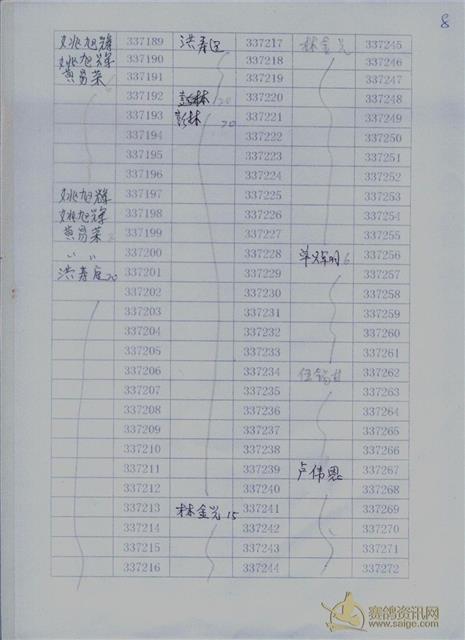 8
姚旭辉 337189 洪寿 337217 林金光 337245
姚旭辉 337190 337218 337246
黄易荣 337191 337219 337247
337192 彭林 20 337220 337248
337193 彭林 20 337221 337249
337194 337222 337250
337195 337223 337251
337196 337224 337252
姚旭辉 337197 337225 337253
姚旭辉 337198 337226 337254
黄易荣 337199 337227 337255
〃 〃 337200 337228 6 337256
洪寿 20 337201 337229 337257
337202 337230 337258
337203 337231 337259
337204 337232 337260
337205 337233 337261
337206 337234 337262
337207 337235 337263
337208 337236 337264
337209 337237 337265
337210 337238 337266
337211 337239 卢伟恩 337267
337212 337240 337268
337213 林金光 15 337241 337269
337214 337242 337270
337215 337243 337271
337216 337244 337272
赛鸽资讯网
www.saige.com